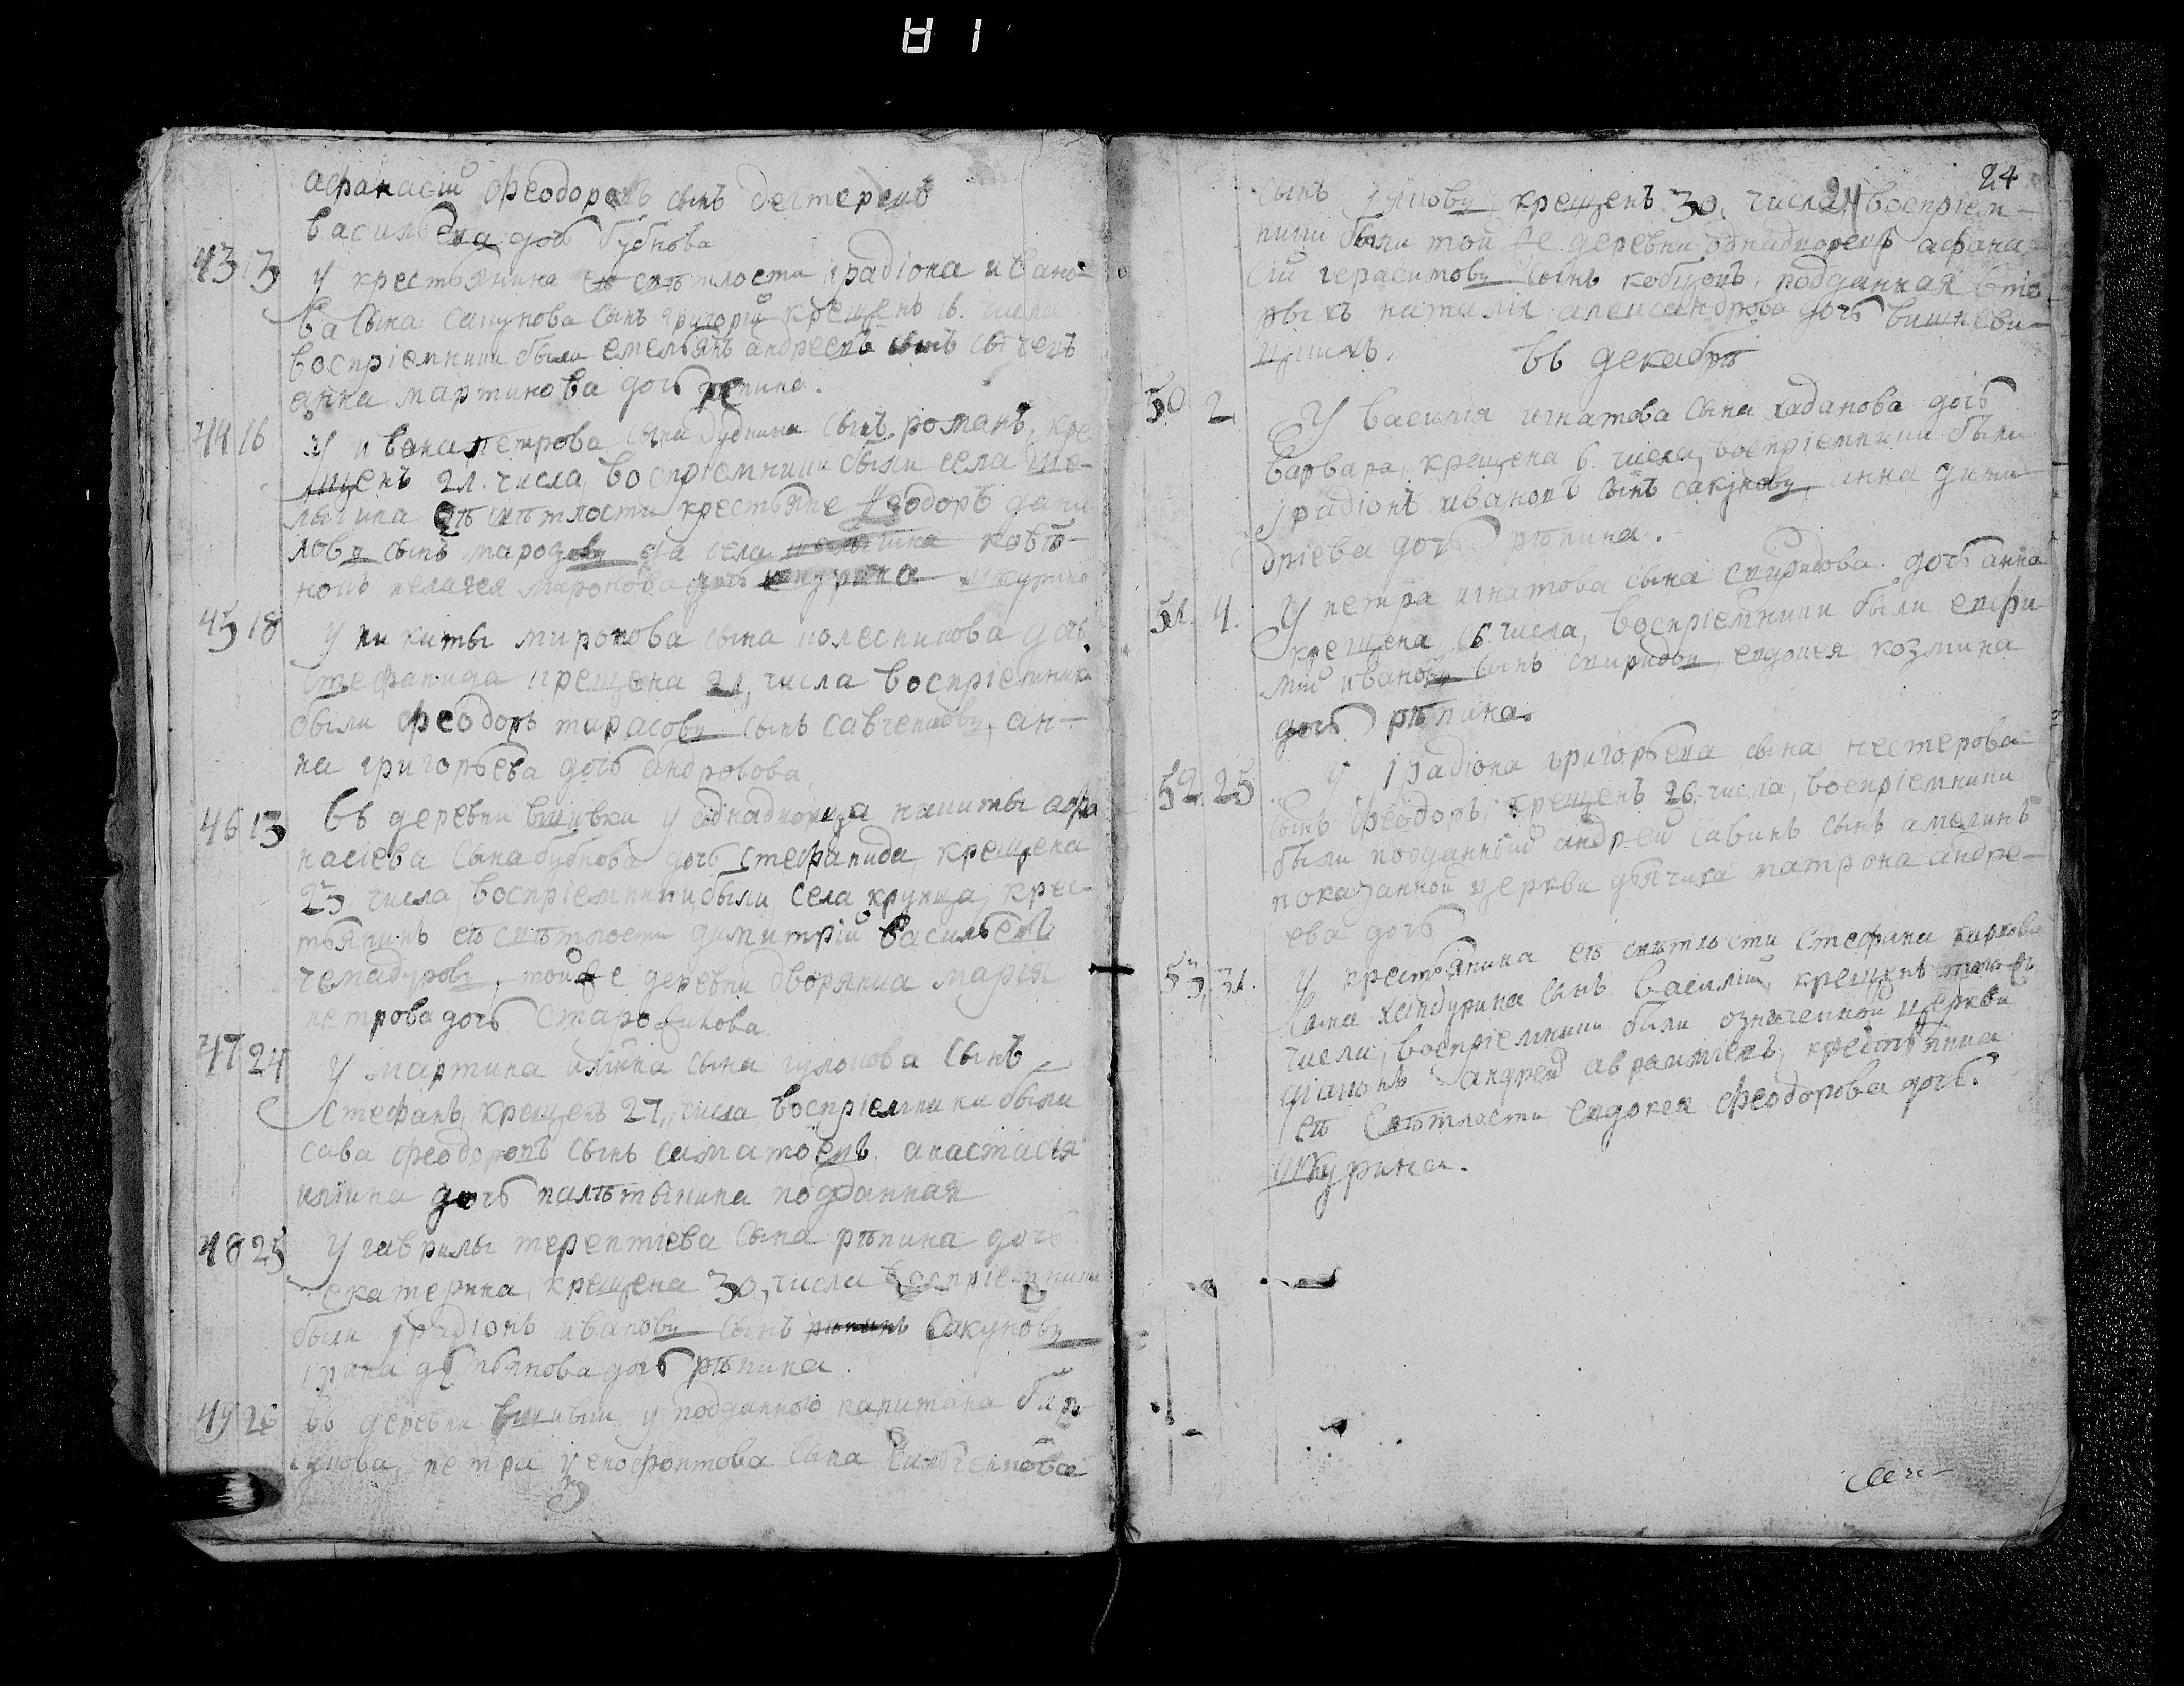 81
афанасій феодоровъ сынъ
васильева дочь бубнова
43 13 У крестьянина ея свѣтлости ірадіона ивано-
ва сына сакунова сынъ григорій крещенъ 16. числа
воспріемники были емельянъ андреевъ сынъ
анна мартинова дочь репина.
44 16 У ивана петрова сына бубнина сынъ романъ, кре-
щенъ 21. числа, воспріемники были села ше-
лыгина ея свѣтлости крестьяне феодоръ дани
ловъ сынъ да села
пелагея миронова дочь шкурина
45 18 У никиты миронова сына колесникова дочь
стефанида крещена 21, числа воспріемники
были феодоръ тарасовъ сынъ савченковъ, ан-
на григорьева дочь бондровова
46 13 въ деревни вшивки у аднадворца никиты афа
насіева сына бубнова дочь стефанида крещена
23, числа, воспріемники были, села крупца, крес-
тьянинъ ея свѣтлости димитрій васильевъ
чемадуровъ, той же деревни дворянка марія
петрова дочь старосикова.
47 24 У мартина иліина сына гулокова сынъ
стефанъ, крещенъ 27, числа воспріемники были
сава феодоровъ сынъ саматоевъ анастасія
иліина дочь палѣтькина подданная
48 25 У гаврилы терентіева сына рѣпина дочь
екатерина, крещена 30, числа воспріемники
были ірадіонъ ивановъ сынъ рѣпинъ сакуновъ
ірина демьянова дочь рѣпина.
49 26 въ деревни вшивки у подданного капитана
петра ксенофонтова сына
24
сынъ яковъ, крещенъ 30. числа, воспріем-
ники были той же деревни однадворецъ афана
сій герасимовъ сынъ кобцовъ, подданная
наталія александрова дочь вишневи-
въ декабрѣ
50 2 У василія игнатова сына хаданова дочь
варвара, крещена 6. числа, воспріемники были
ірадіонъ ивановъ сынъ сакуновъ, анна дими
дріева дочь рѣпина.
51. 4. У петра игнатова сына спиридова дочь анна
крещена 6. числа, воспріемники были евфи-
мій ивановъ сынъ спиридовъ, евдокея козмина
дочь рѣпина.
52 25 У ірадіона григорьева сына нестерова
сынъ феодоръ, крещенъ 26, числа, воспріемники
были подданный андрей савинъ сынъ амелинъ
показанной церкви дьячика матрона андре-
ева дочь
53, 31. У крестьянина ея свѣтлости стефана карпова
сына хандурина сынъ василій, крещенъ того ж
числа, воспріемники были означенной церкви
діаконъ андрей авраміевъ, крестьянка
ея свѣтлости евдокея феодорова дочь
шкурина.